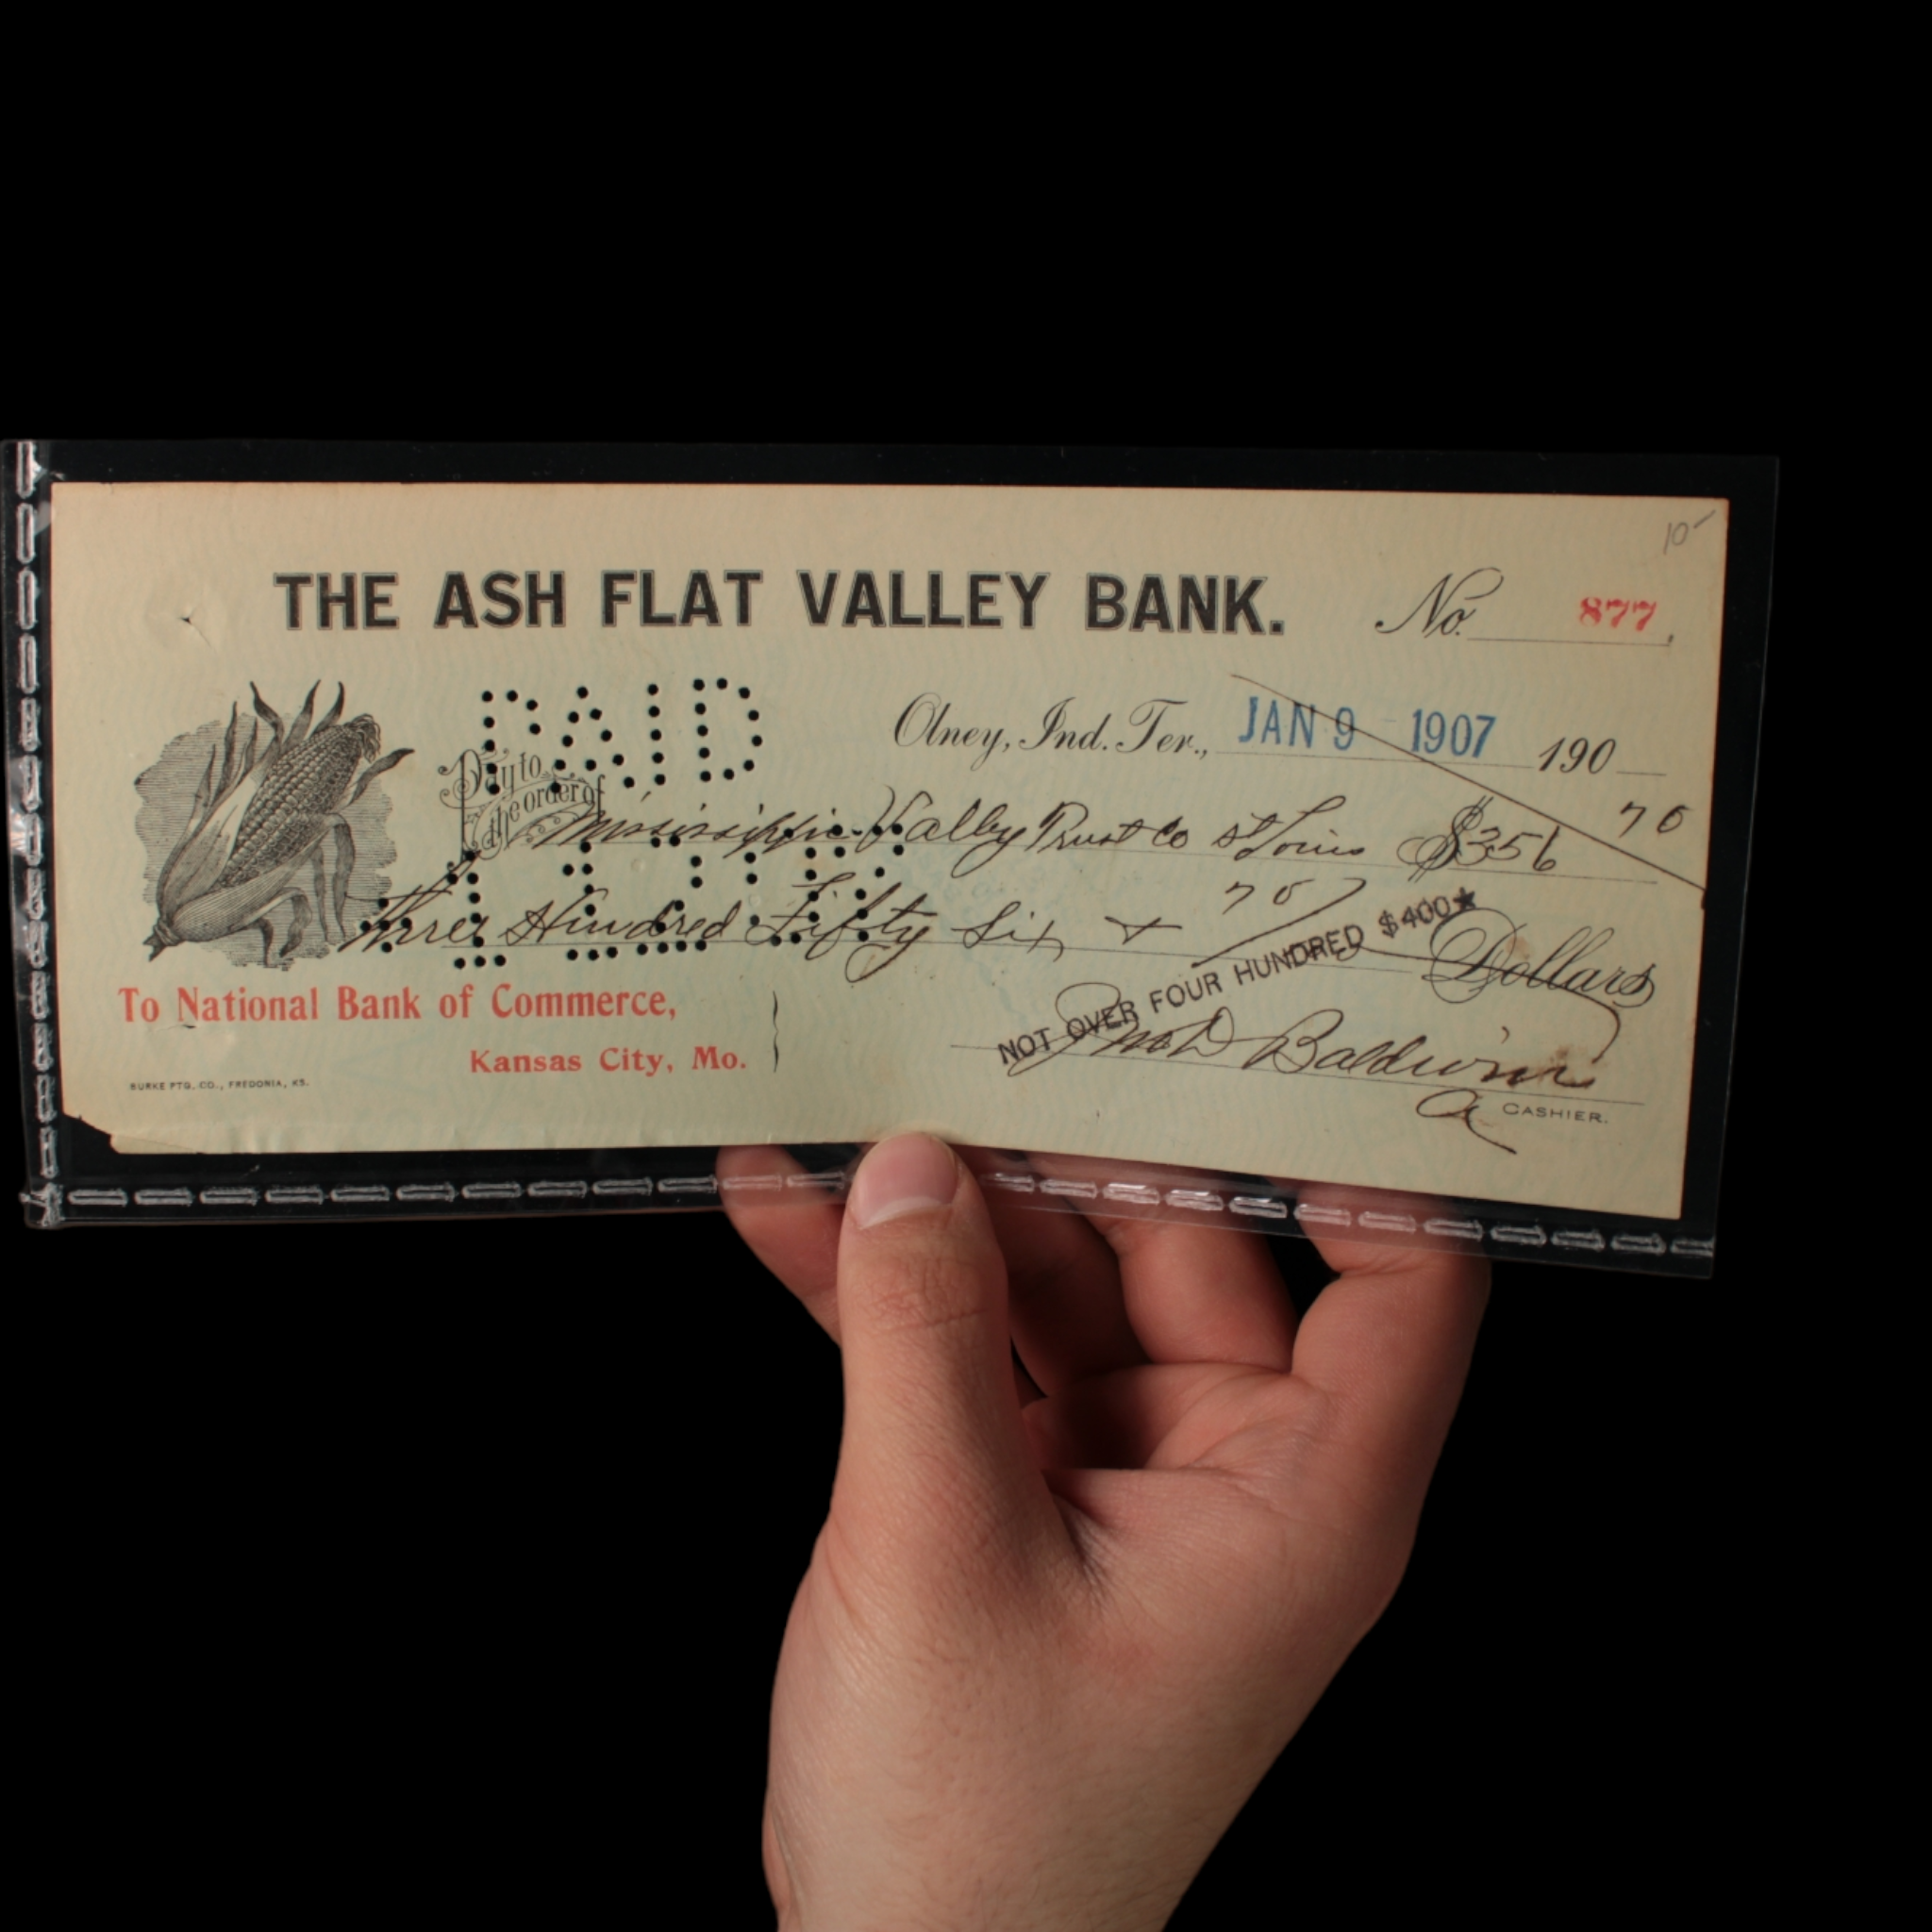 10-
THE ASH FLAT VALLEY BANK.
No. 877
PAID
Olney, Ind. Ter., JAN 9 1907 190
Pay to the order of Mississippi Valley Trust Co St Louis $356 70
Three Hundred Fifty Six & 70/ Dollars
NOT OVER FOUR HUNDRED $400★
To National Bank of Commerce,
Kansas City, Mo.
Baldwin
a CASHIER.
BURKE PTG. CO., FREDONIA, KS.